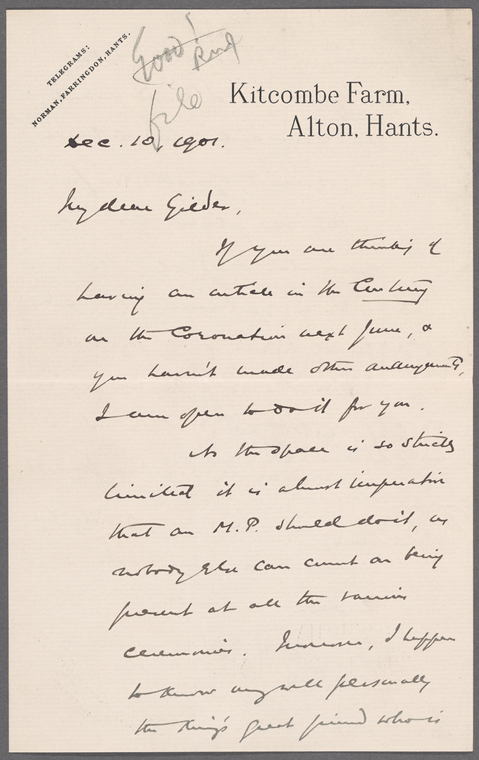 TELEGRAMS:
NORMAN, FARRINGDON, HANTS.
Good!
file
Kitcombe Farm,
Alton, Hants.
Dec. 10, 1901.
My dear Gilder,
If you are thinking of
having an article in the Century
on the Coronation next June, &
you haven't made other arrangements,
I am open to do it for you.
As the space is so strictly
limited it is almost imperative
that an M.P. should do it, as
nobody else can count on being
present at all the various
ceremonies. Moreover, I happen
to know very well personally
the King's great friend who is